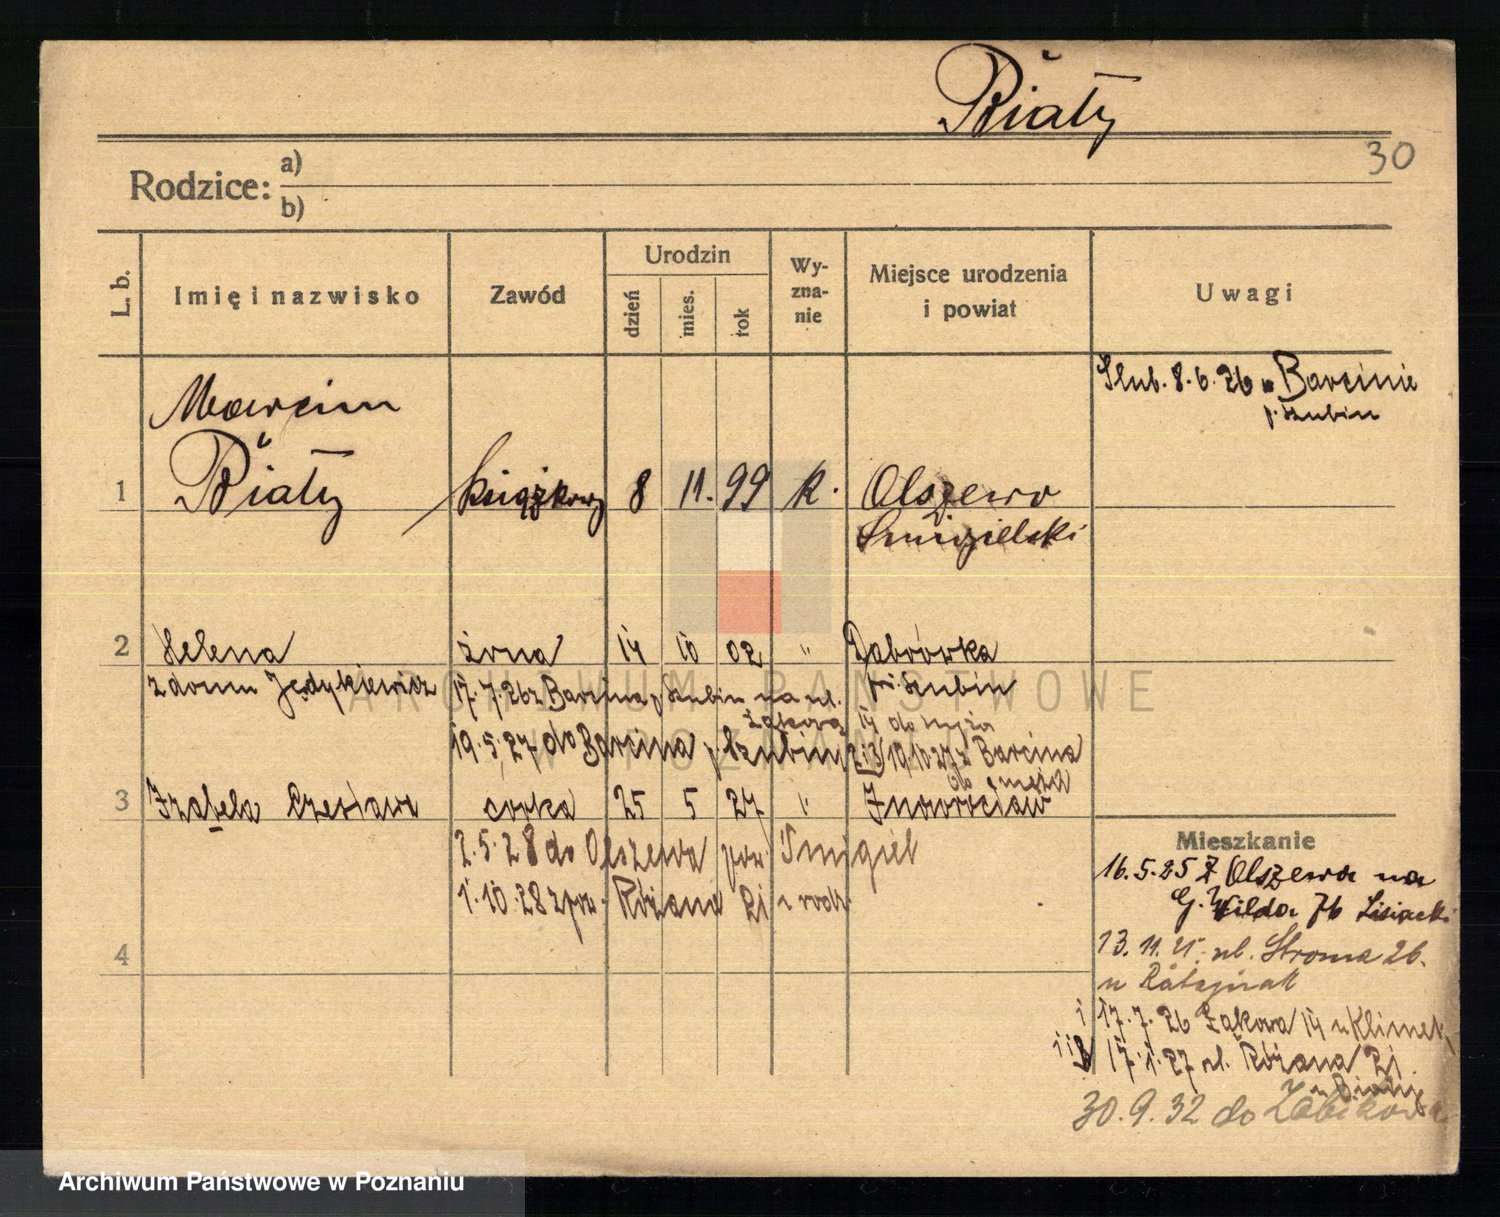 Biały
30
Rodzice: a)
b)
L. b.
Imię i nazwisko
Zawód
Urodzin
dzień
mies.
rok
Wy-
zna-
nie
Miejsce urodzenia
i powiat
Uwagi
Ślub. 8.6.26 w Barcinie
p. Szubin
Marcin
1 Biały książkowy 8 11. 99 k. Olszewo
Śmigielski
2 Helena żona 14 10 02 " Dąbrówka
z domu Jędykiewicz 17.7.26 z Barcina p. Szubin na ul. pow. Szubin
Łąkową 14 do męża
19.5.27 do Barcina p. Szubin 2 i 3) 19.10.27 z Barcina
do męża
3 Izabela Czesława córka 25 5 27 " Inowrocław
2.5.28 do Olszewa pow. Śmigiel
1.10.28 z pow. Różana 21 u rodz.
4
Mieszkanie
16.5.25 z Olszewa na
G. Wilda 76 Lisiacki
13.11.25. ul. Stroma 26.
u Ratajczak
1 17.7.26 Łąkowa 14 u Klimek
1 i 2 17.1.27 ul. Różana 21.
u Biały
30.9.32 do Żabikowa
ARCHIWUM PAŃSTWOWE
W POZNANIU
Archiwum Państwowe w Poznaniu